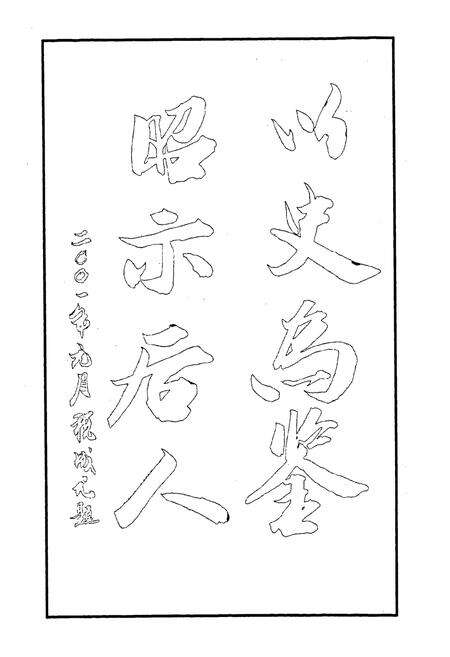 以史为鉴
昭示后人
二〇〇一年九月